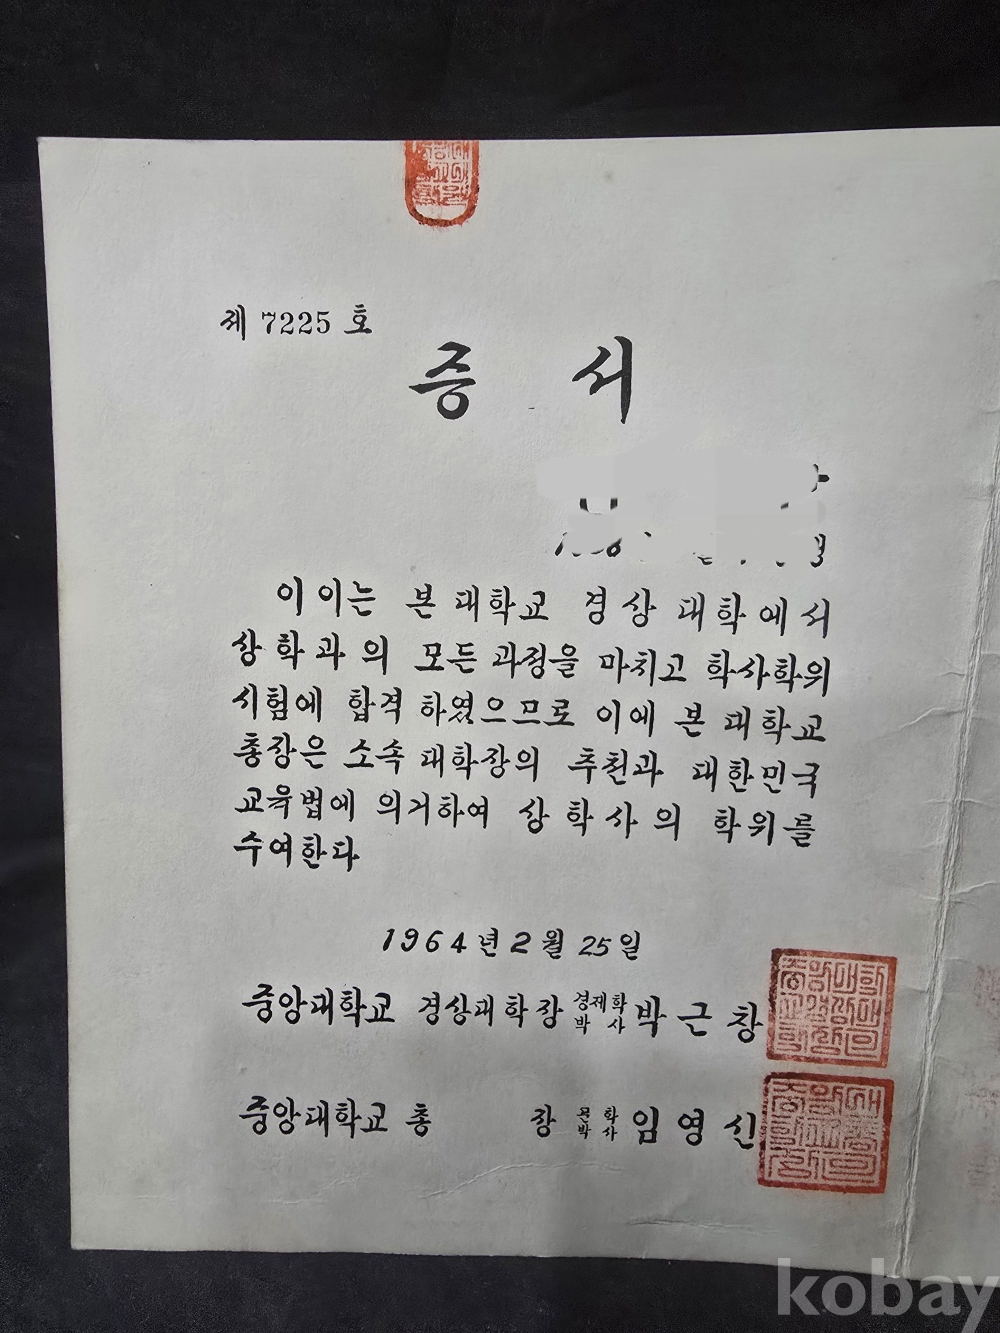 제 7225 호
증 서
이 이는 본 대학교 경상 대학에서
상학과의 모든 과정을 마치고 학사학위
시험에 합격 하였으므로 이에 본 대학교
총장은 소속 대학장의 추천과 대한민국
교육법에 의거하여 상학사의 학위를
수여한다
1964년 2월 25일
중앙대학교 경상대학장 경제학박사 박근창
중앙대학교 총 장 문학박사 임영신
kobay